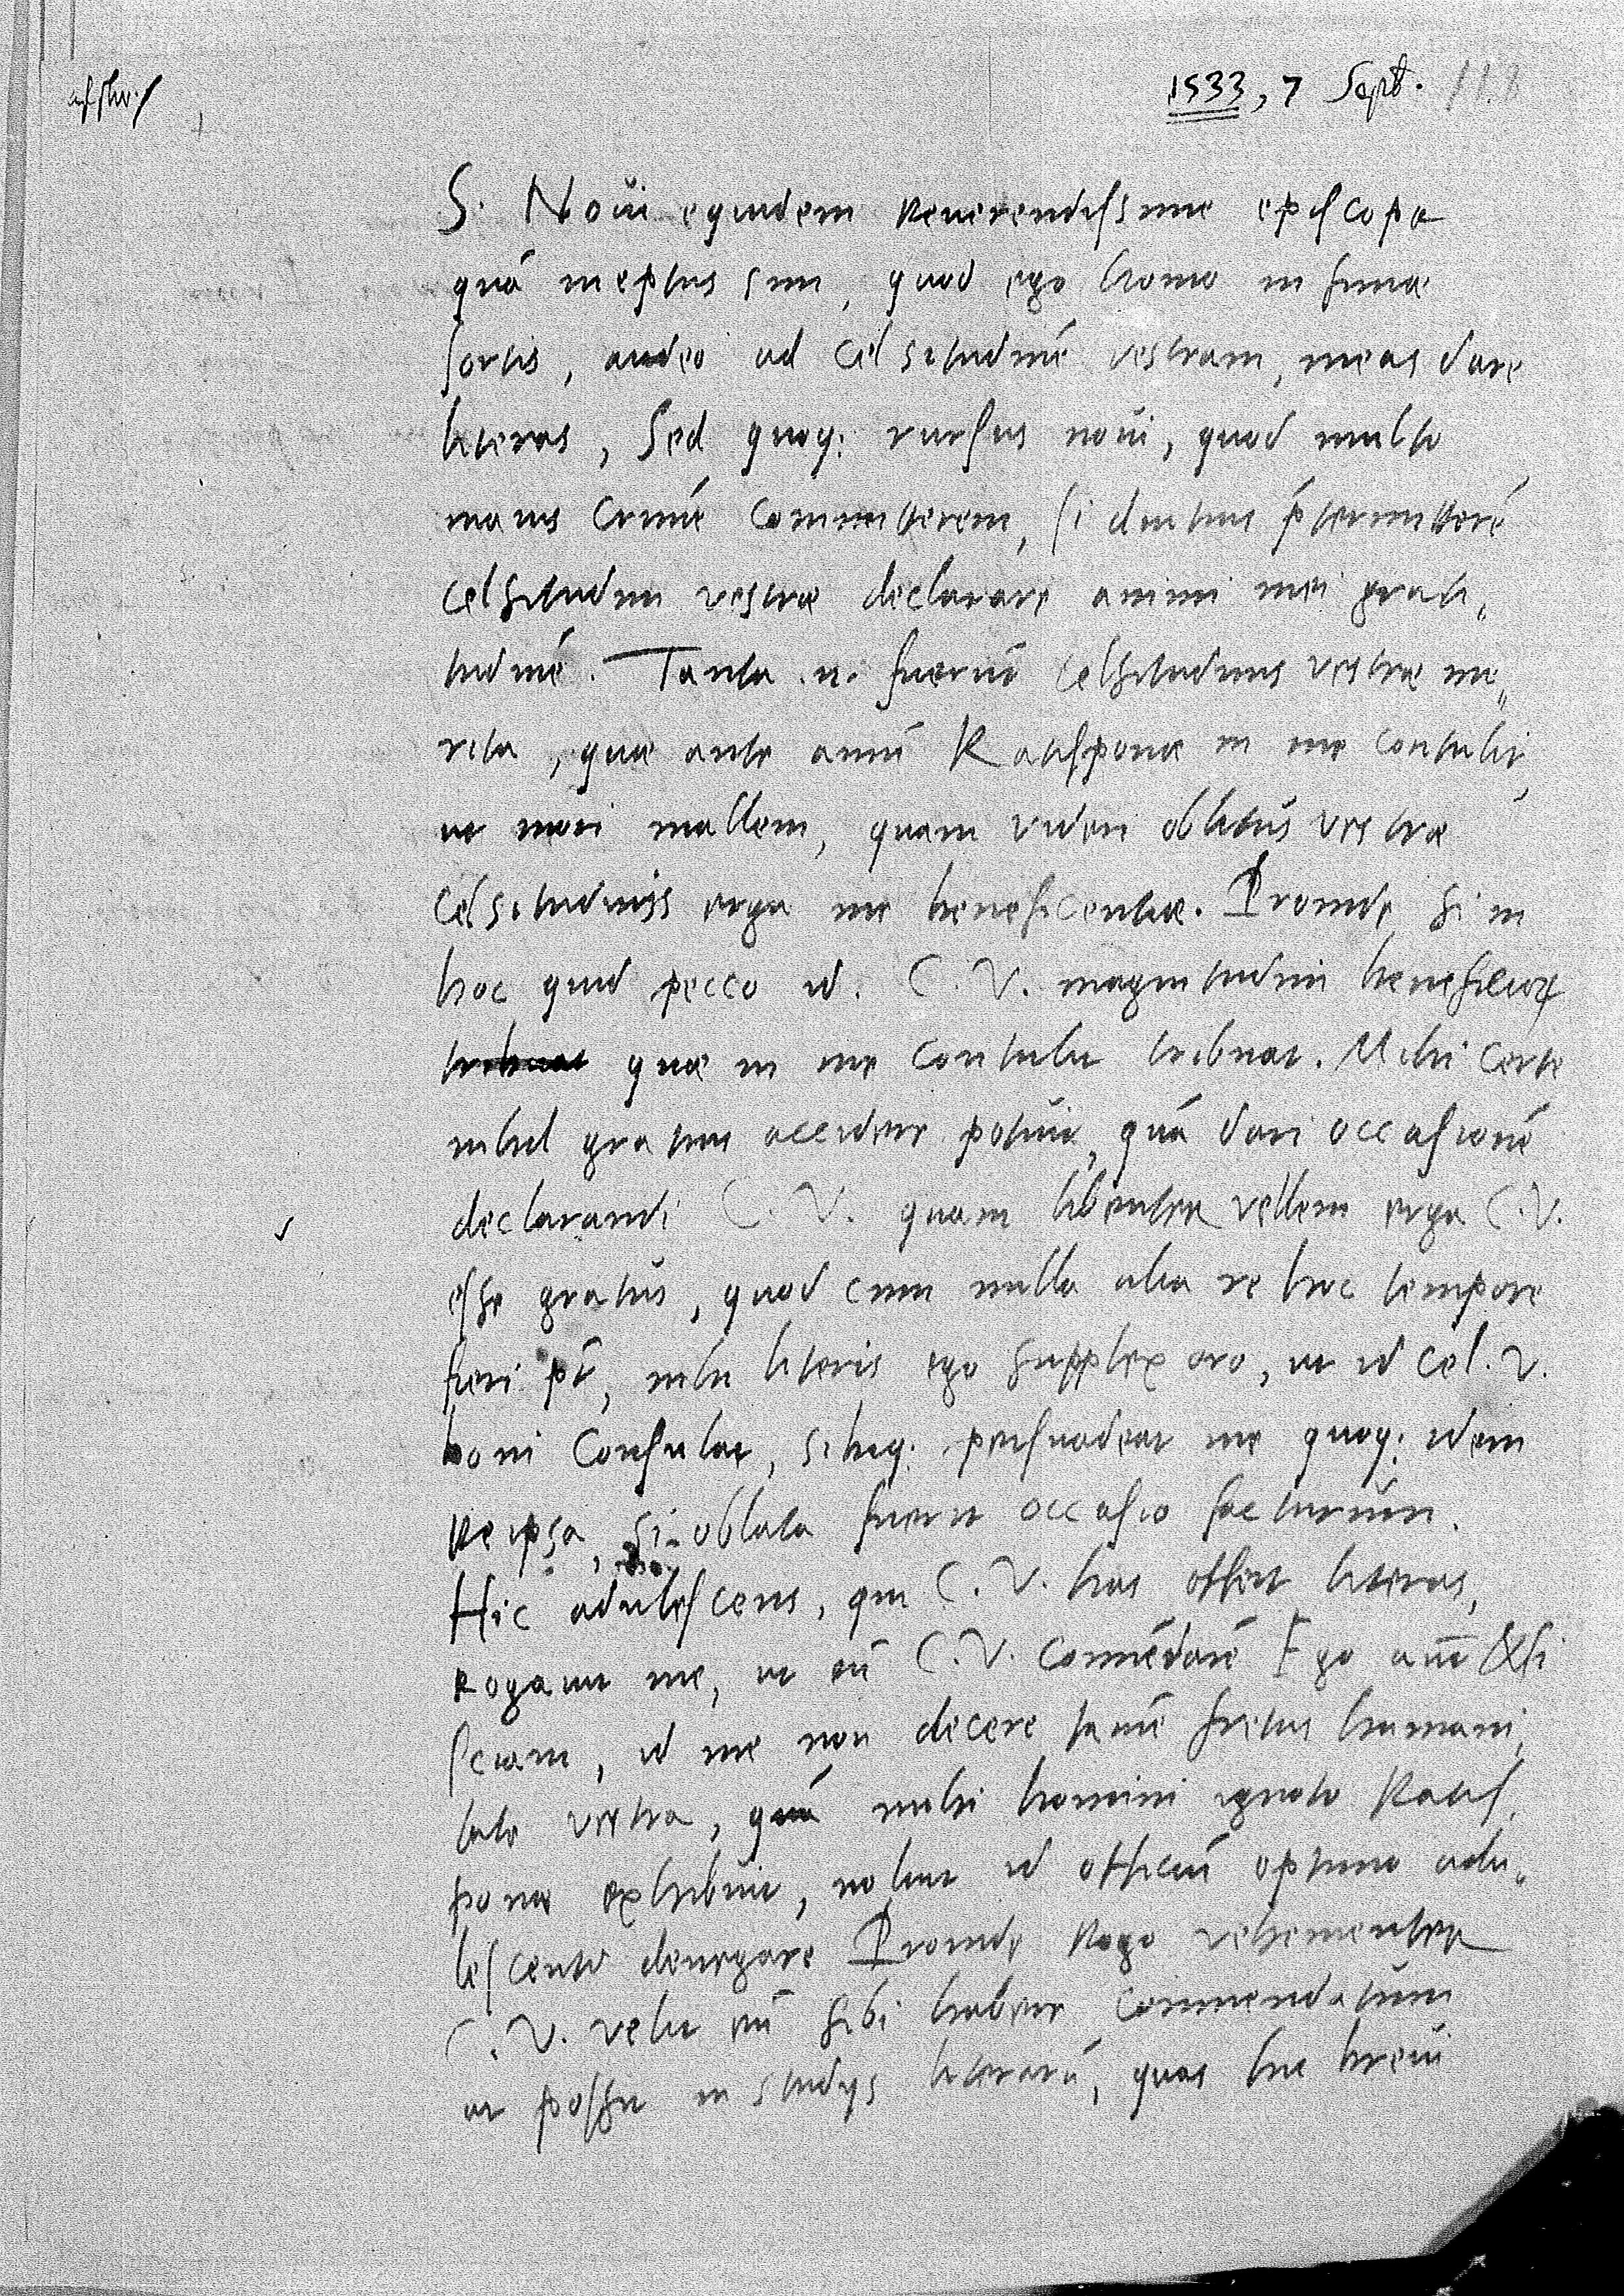 1533, 7 Sept. 118
S. Novi equidem Reverendissime episcope
quā ineptus sim, quod ego homo infimæ
sortis, audeo ad celsitudinē vestram, meas dare
literas, Sed quoq; rursus novi, quod multo
maius crimē committerem, si diutius p̄termitterē
celsitudini vestræ declarare animi mei grati„
tudinē. Tanta .n. fuerūt celsitudinis vestræ me„
rita, quæ ante annū Ratisponæ in me contulit,
ut mori mallem, quam videri oblitus vestræ
celsitudinis erga me beneficentiæ. Proinde si in
hoc quid pecco id C. V. magnitudini beneficiorꝝ
tribuat quæ in me contulit tribuat. Mihi certe
nihil gratius accidere potuit, quā dari occasionē
declarandi C. V. quam libenter vellem erga C.V.
esse gratus, quod cum nulla alia re hoc tempore
fieri pōt, nisi literis ego supplex oro, ut id Cel. V.
boni consulat, sibiq; persuadeat me quoq; idem
reipsa, si oblata fuerit occasio facturum.
Hic adulescens, qui C. V. has offert literas,
rogavit me, ut eū C.V. commēdarē Ego autē etsi
sciam, id me non decere tamē fretus humani„
tate vestra, quā mihi homini ignoto Ratis„
ponæ exhibuit, nolui id officiū optimo adu„
lescenti denegare Proinde rogo vehementer
C. V. velit eū sibi habere commendatum
ut possit in studijs literarū, quas hic brevi